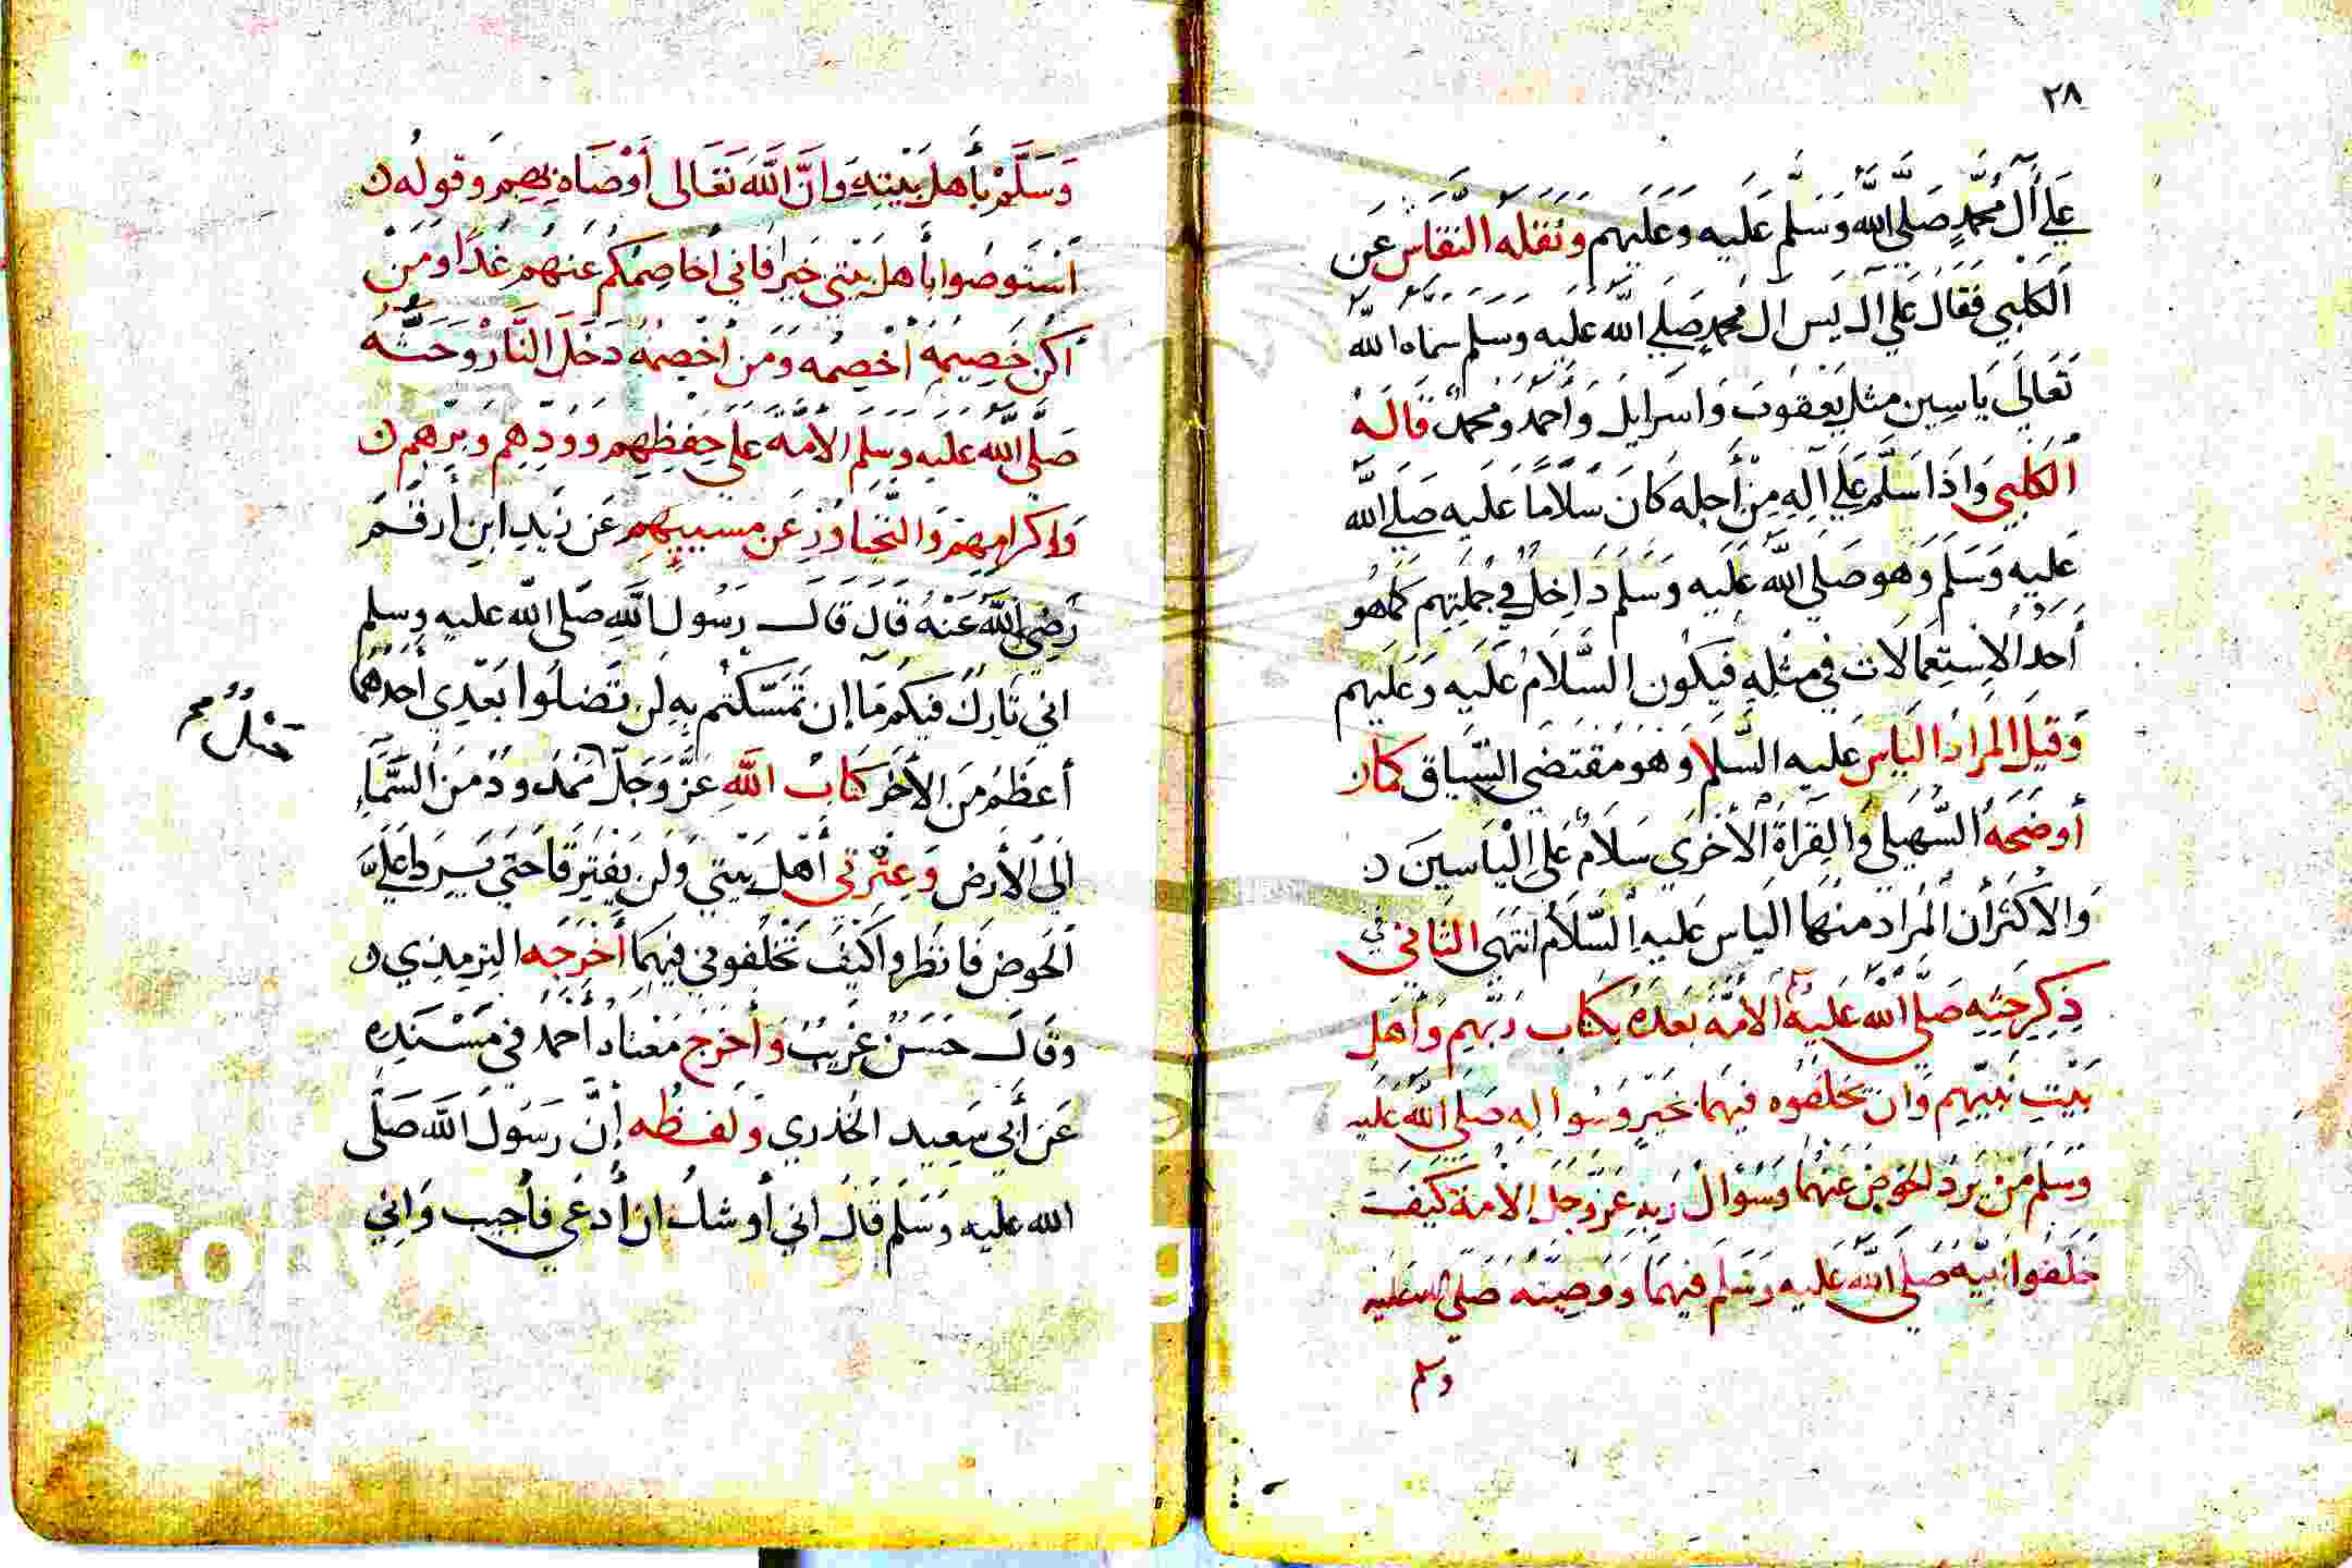 ٢٨
عَلَى آلِ مُحَمَّدٍ صَلَّى اللهُ وَسَلَّمَ عَلَيه وَعَلَيهم وَنَقَلَهُ النقاش عَن
الكلبي فَقَال عَلي آل يس ال محمدٍ صَلَى الله عليه وسلم سماه الله
تَعَالَى يَاسِين مثل يَعْقوبَ وَاسرايل وَأحمد ومحمدٌ قالَهُ
الكلبي وَاذا سَلَّم عَلَى آلِهِ مِنْ أجله كانَ سَلَامًا عليه صَلى الله
عَليه وَسَلم وَهو صَلى الله عَليه وَسَلم دَاخِلٌ في جملتهِم كما هُو
أحَدُ الاستِعمالات في مثله فيَكون السَّلامُ عَليه وَعَليهم
وَقيلَ المرادُ الياس عليه السَّلام وَهوَ مُقتَضى السّياق كما ن
أوضَحَهُ السُّهَيلي وَالقِرَاةُ الأخرَى سَلامٌ عَلى إلْيَاسينَ د
وَالاكثَر أن المراد منهَا الياس عَليه السَّلام انتهى الثاني في
ذِكر حَثِه صَلى الله عَليه الامَّة بَعدَهُ بكتاب رَبّهم وَأهل
بَيْتِ نَبيّهِم وَان يخلفُوه فيهمَا بخَيرٍ وَسُواله صَلى الله عَليه
وَسَلم مَنْ يَرد الحَوضَ عَنهُما وَسُؤال رَبِه عَز وَجل الامة كيفَ
خلفوا نبيّه صَلى الله عَليه وَسَلم فيهمَا وَوصيّتهُ صَلى الله عَليه
وسلم
وَسَلَّمَ بأهل بَيْتِهِ وَانَّ اللهَ تَعَالى أوْصَاه بهم وَقوله ن
استَوصُوا بأهل بيتي خيرا فاني أخاصِمُكم عَنهُم غدًا وَمَنْ
أكن خَصِيمهُ أخصِمه وَمَن أخصِمهُ دَخَلَ النَّار وَحَثّهُ
صَلَّى الله عليه وسَلم الامة عَلى حِفظِهِم وَوُدِهِم وَبِرّهم ن
وَإكرامِهِم وَالتّجاوُزِ عَن مسييهم عَن زَيدِ ابن أرقَم
رَضِيَ اللهُ عَنْهُ قَالَ قَالَ رَسُول اللهِ صَلى الله عليه وسلم
اني تَارِكٌ فيكم مَا إن تَمَسّكتُم بهِ لَن تَضِلوا بَعْدِي أحَدُهُما
أعظمُ مَن الأخَر كتابُ اللهِ عَزَّ وَجَلَّ ممدود مِنَ السَّماءِ
حَبْلٌ صح
الى الأرض وَعِترَتي أهلَ بَيتي وَلَن يَفتَرقَا حَتى يَرِدا عَلَيَّ
الحَوض فَانظروا كَيْفَ تَخْلفوني فيهمَا أخْرَجه الترمِذي و
وقال حَسَن غَريبٌ وَأخرَجَ مَعْناه أحمدُ في مُسْنَدِه
عَن أبي سَعِيد الخُدري وَلَفظُه إنَّ رسُولَ الله صَلَّى
الله عليه وَسَلَم قَالَ اني أوشك ان أُدعَى فأجيبَ وَانِي